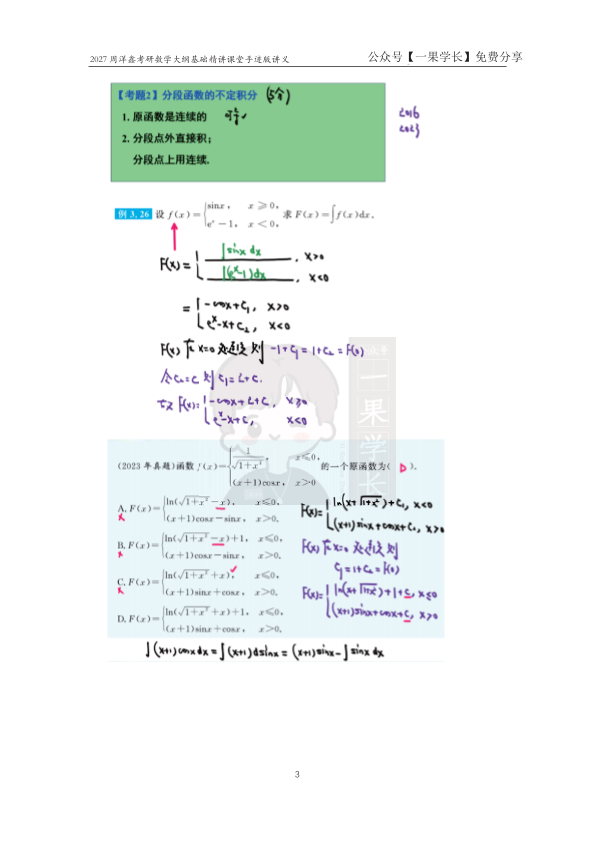 2027周洋鑫考研数学大纲基础精讲课堂手迹版讲义 公众号【一果学长】免费分享
【考题2】分段函数的不定积分 (5分)
1. 原函数是连续的 可导✓
2. 分段点外直接积;
分段点上用连续.
2016
2023
例 3.26 设 f(x)={sinx, x⩾0, e^x−1, x<0, 求 F(x)=∫f(x)dx.
F(x)={∫sinx dx, x>0
∫(e^x-1)dx, x<0
={-cosx+C₁, x>0
e^x-x+C₂, x<0
F(x)在x=0处连续 则 -1+C₁=1+C₂=F(0)
令C₂=C 则 C₁=2+C.
故 F(x)={-cosx+2+C, x⩾0
e^x-x+C, x<0
公众号
一果学长
(2023年真题)函数 f(x)={1/√(1+x²), x⩽0, (x+1)cosx, x>0 的一个原函数为( D ).
A. F(x)={ln(√(1+x²)−x), x⩽0,
(x+1)cosx−sinx, x>0.
B. F(x)={ln(√(1+x²)−x)+1, x⩽0,
(x+1)cosx−sinx, x>0.
C. F(x)={ln(√(1+x²)+x), x⩽0,
(x+1)sinx+cosx, x>0.
D. F(x)={ln(√(1+x²)+x)+1, x⩽0,
(x+1)sinx+cosx, x>0.
F(x)={ln(x+√(1+x²))+C₁, x<0
(x+1)sinx+cosx+C₂, x>0
F(x)在x=0处连续 则
C₁=1+C₂=F(0)
F(x)={ln(x+√(1+x²))+1+C, x⩽0
(x+1)sinx+cosx+C, x>0
∫(x+1)cosxdx=∫(x+1)dsinx=(x+1)sinx-∫sinx dx
3